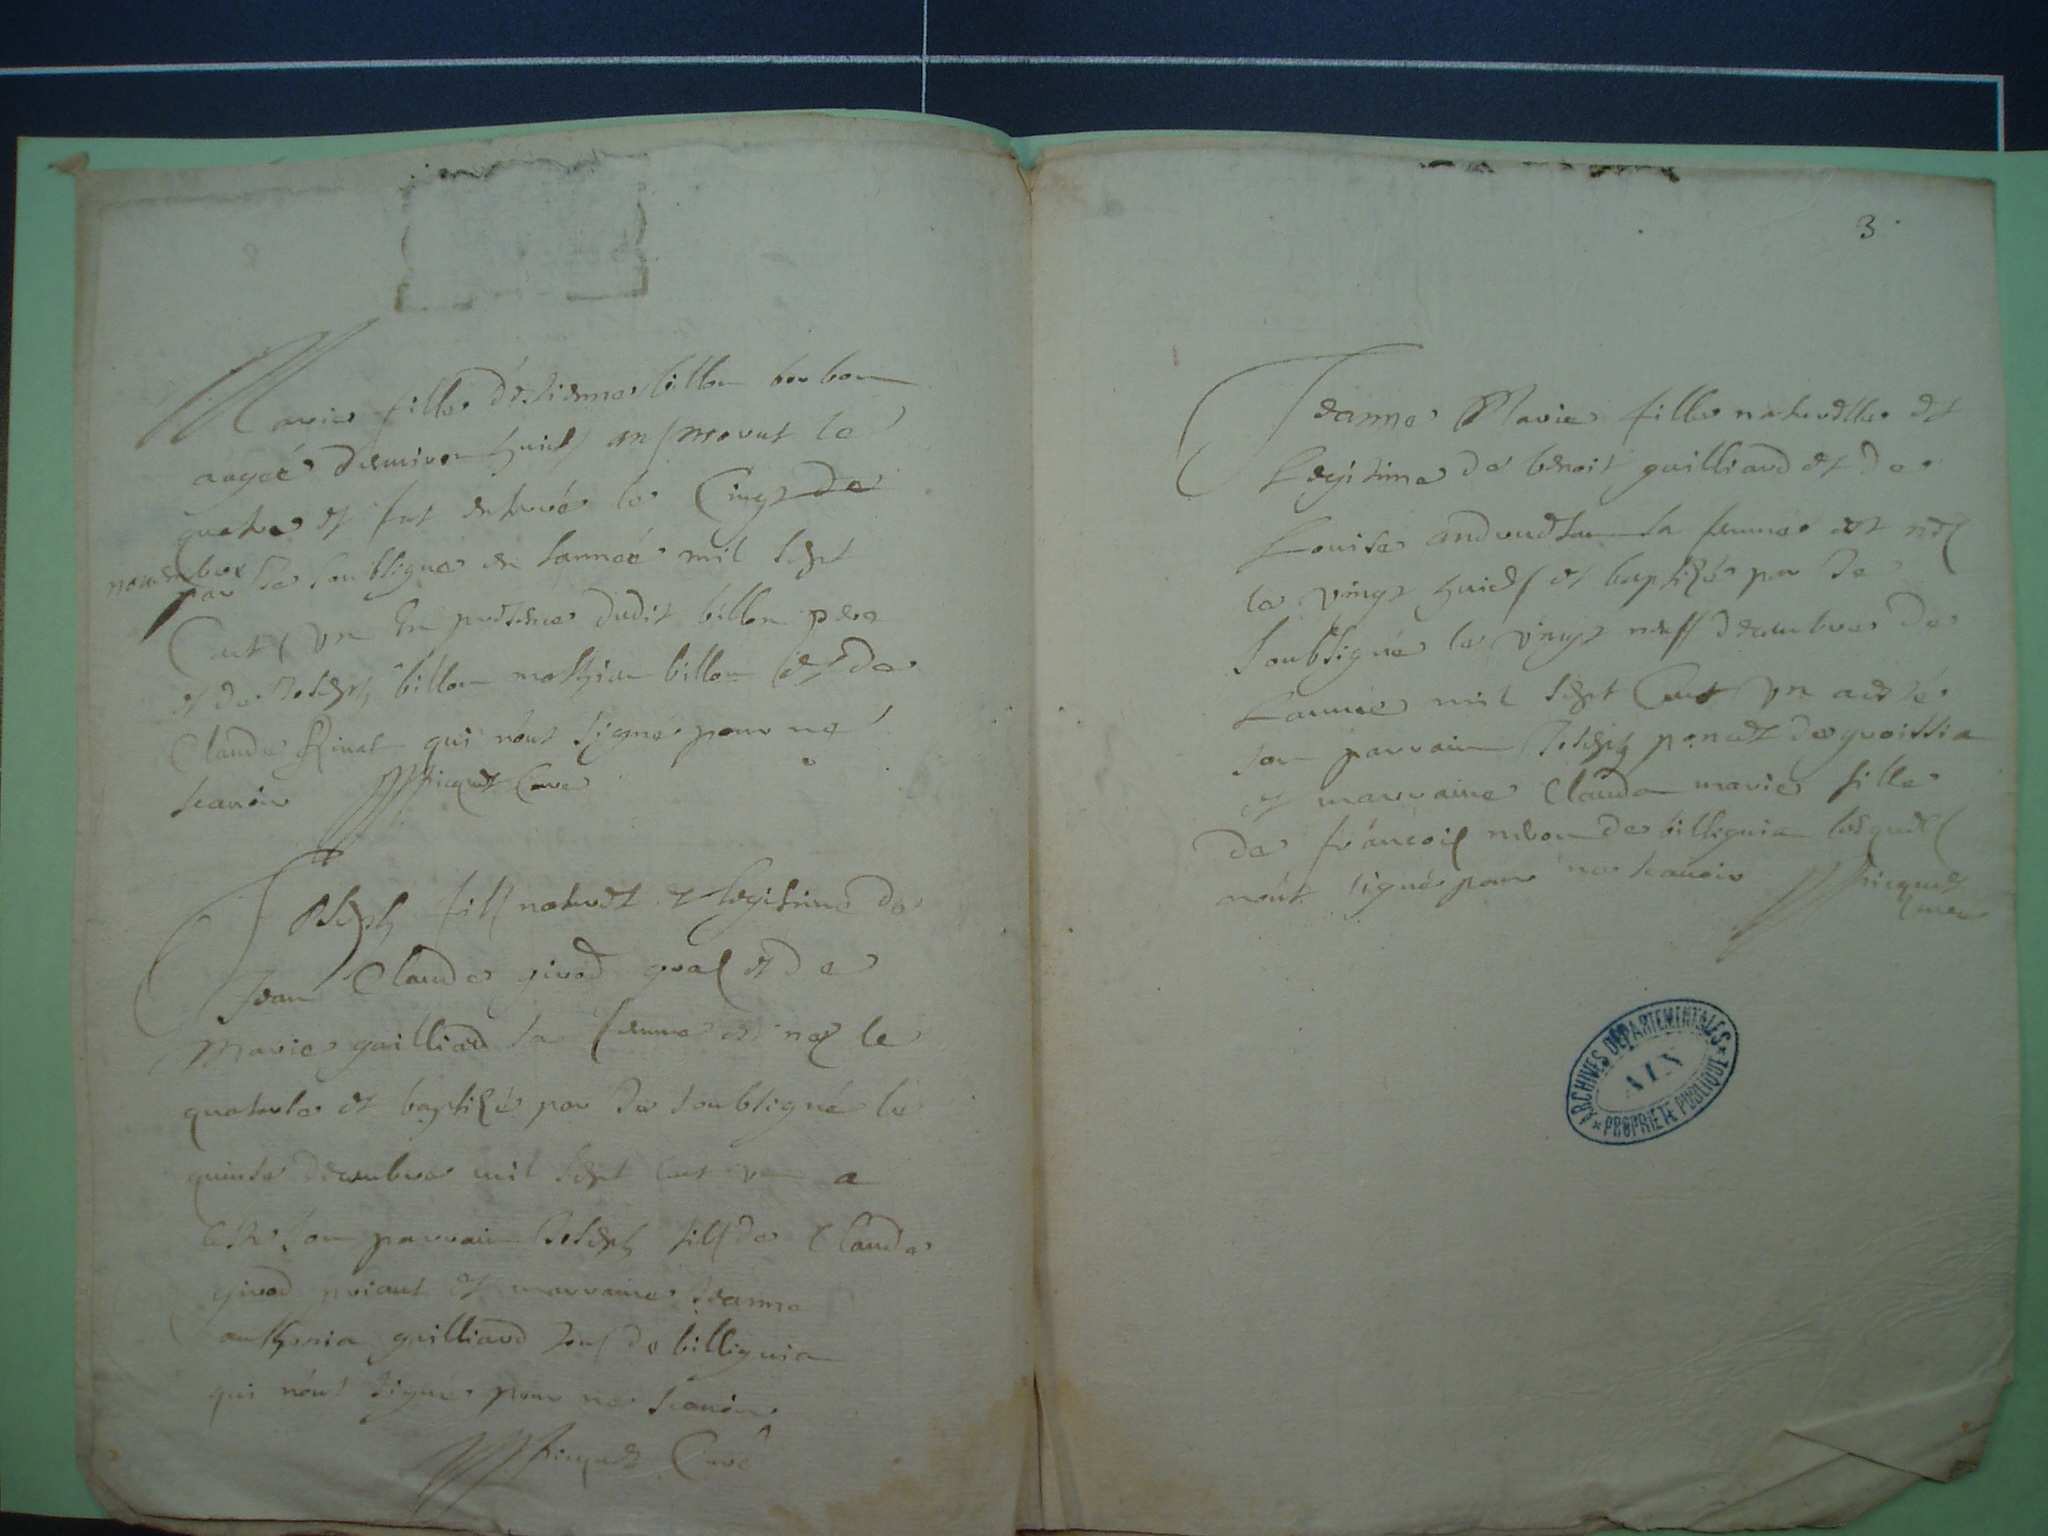 Marie fille d'estienne billon
aagée denviron huict ans mourut le
quatre et fut enterrée le cinqz de
novembre
par Je soubsigné en lannée mil sept
Cents un En presence dudit billon pere
et de Joseph billon mathieu billon et de
Claude qui n'ont signé pour ne
scavoir Picquet Curé
Joseph fils naturel et legitime de
Jean Claude girod et de
Marie guilliard sa femme est nez le
quatorse et baptizé par Je soubsigné le
quinse decembre mil sept cent un a
esté son parrain Joseph fils de Claude
girod et marraine Jeanne
anthonia guilliard tous de billignia
qui n'ont signé pour ne scavoir
Picquet Curé
3
Jeanne Marie fille naturelle et
Legitime de benoit guilliard et de
Louise sa femme est née
le vingt huict et baptizée par Je
soubsigné le vingt neuf decembre de
Lannée mil sept Cent un a esté
son parrain Joseph poncet de
et marraine Clauda marie fille
de francois de billignia lesquels
n'ont signé pour ne scavoir Picquet
Curé
ARCHIVES DÉPARTEMENTALES
AIN
PROPRIÉTÉ PUBLIQUE